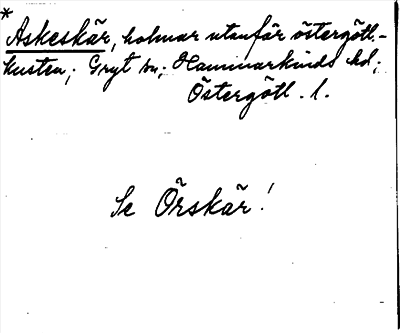 *
Askeskär, holmar utanför östergötl.-
kusten; Gryt sn; Hammarkinds hd;
Östergötl. l.
Se Örskär!